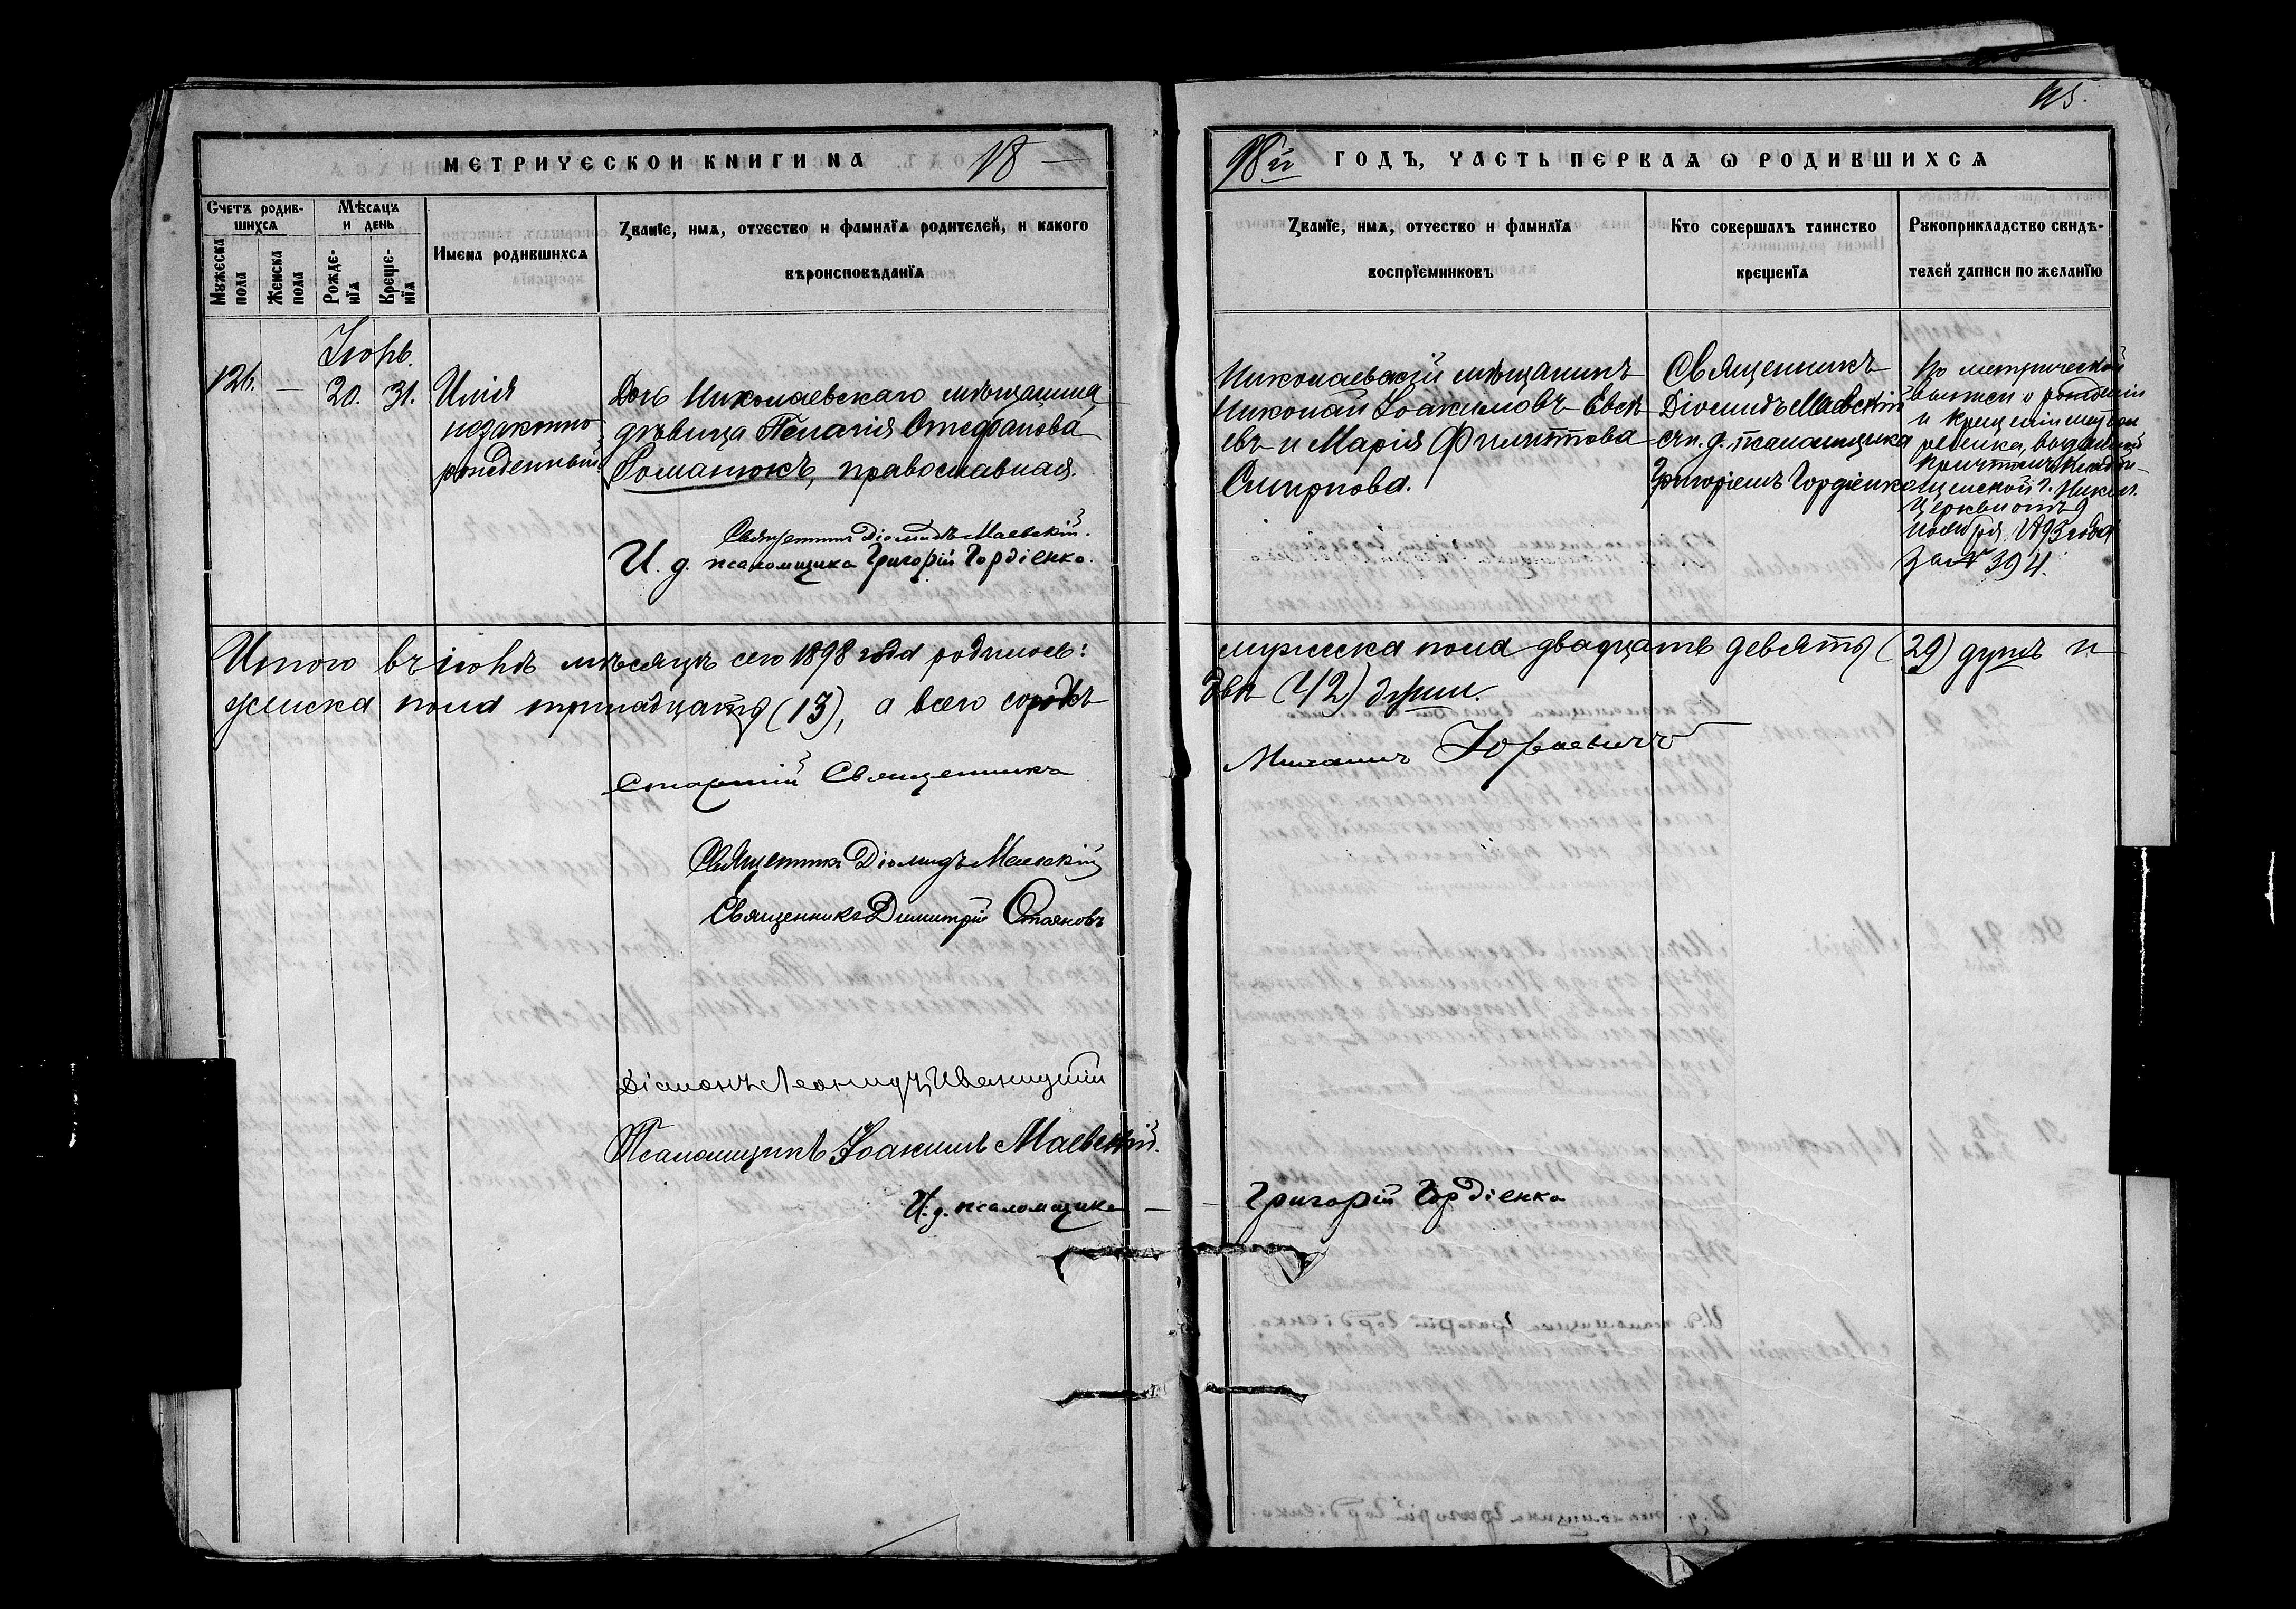 115.
МЕТРИЧЕСКОЙ КНИГИ НА 18 —
98й ГОДЪ, ЧАСТЬ ПЕРВАЯ Ѡ РОДИВШИХСЯ
Счетъ родившихся
Мужеска пола
Женска пола
Мѣсяцъ и день
Рожденїя
Крещенїя
Имена родившихся
Званїе, имя, отчество и фамилїя родителей, и какого
вѣроисповѣданїя
Званїе, имя, отчество и фамилїя
воспрїемниковъ
Кто совершалъ таинство
крещенїя
Рукоприкладство свидѣ-
телей записи по желанїю
126. — 20. 31.
Илія
незаконно
рожденный
Дочь Николаевскаго мѣщанина,
дѣвица Пелагія Стефанова
Романюкъ, православная.
Священникъ Діомидъ Маевскій.
И. д. псаломщика Григорій Гордіенко.
Николаевскій мѣщанинъ
Николай Іоакимовъ Евсѣ-
евъ и Марія Филиппова
Смирнова.
Священникъ
Діомидъ Маевскій
съ и. д. псаломщика
Григоріемъ Гордіенко
метрической
о рожденіи
и крещеніи
ребенка, выданной
церкви отъ 9
ноября 1893 года
за № 394.
Итого въ мѣсяцѣ сего 1898 года родилось:
мужеска пола двадцать девять (29) душъ и
женска пола тринадцать (13), а всего сорокъ
двѣ (42) души.
Старшій Священникъ
Михаилъ Юрьевичъ
Священникъ Діомидъ Маевскій
Священникъ Димитрій Стояновъ
Діаконъ Леонидъ Иваницкій
Псаломщикъ Іоакимъ Маевскій.
И. д. псаломщика —
Григорій Гордіенко